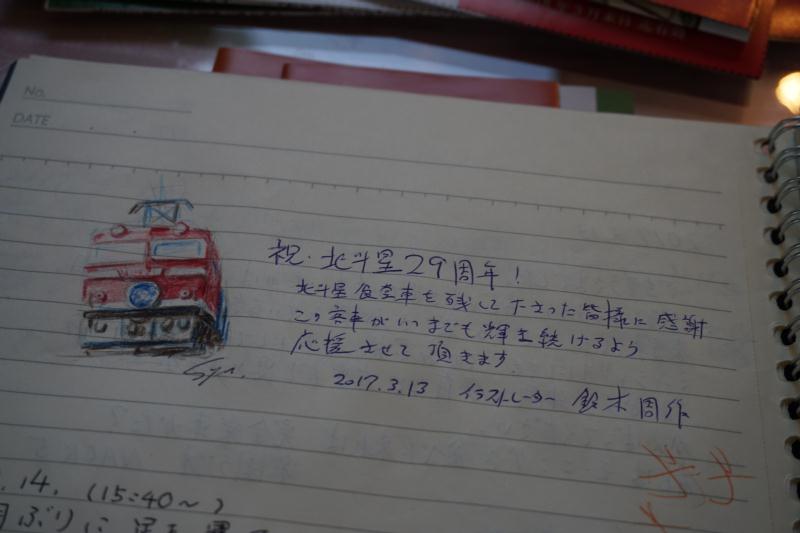 No.
DATE
祝・北斗星29周年!
北斗星食堂車を残して下さった皆様に感謝
この客車がいつまでも輝き続けるよう
応援させて頂きます
2017.3.13 イラストレーター 鈴木周作
.14. (15:40~)
ぶりに